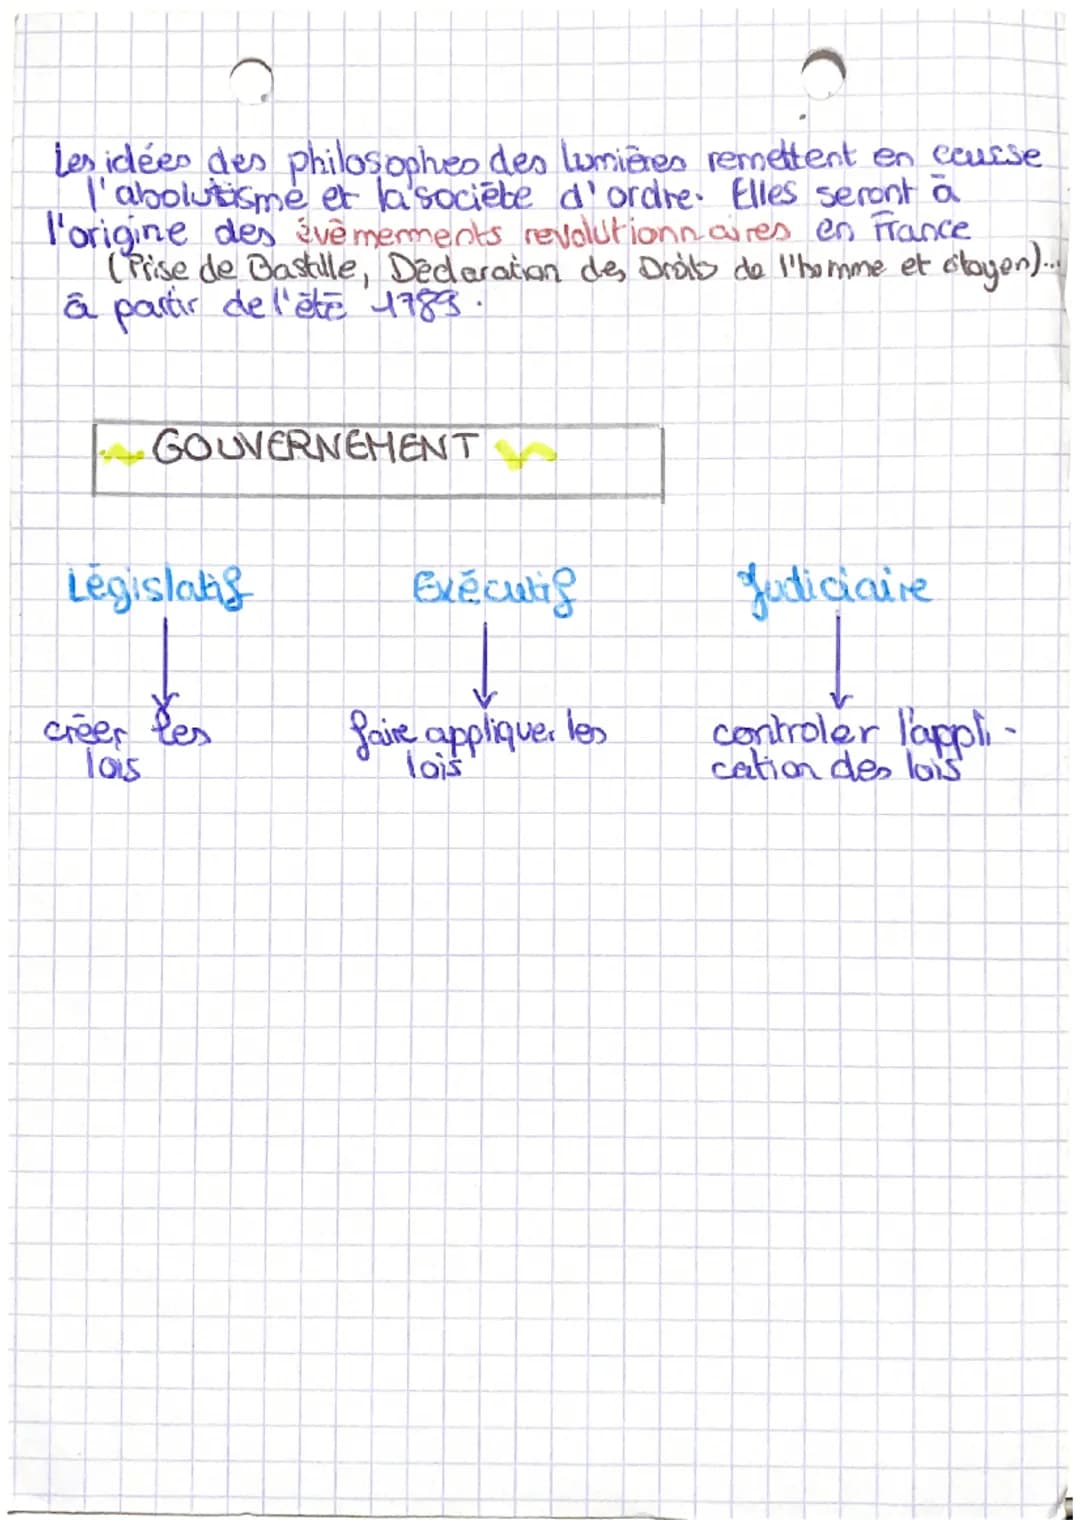 Les idées des philosophes des lumières remettent en causse
l'abolutisme et la sociète d'ordre. Elles seront à
l'origine des évèmements revolutionnaires en France
(Prise de Bastille, Dèclaration des Droits de l'homme et citoyen)...
à partir de l'été 1789.
GOUVERNEMENT
Législatif Exécutif Judiciaire
créer les faire appliquer les controler l'appli-
lois lois cation des lois